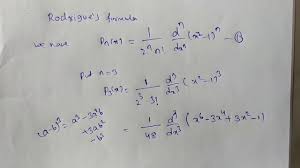 Rodrigue's formula
we have Pn(x) = 1/(2^n n!) d^n/dx^n (x²-1)^n - ①
Put n=3
P₃(x) = 1/(2³·3!) d³/dx³ (x²-1)³
(a-b)³ = a³-3a²b +3ab² -b³
= 1/48 d³/dx³ (x⁶-3x⁴+3x²-1)